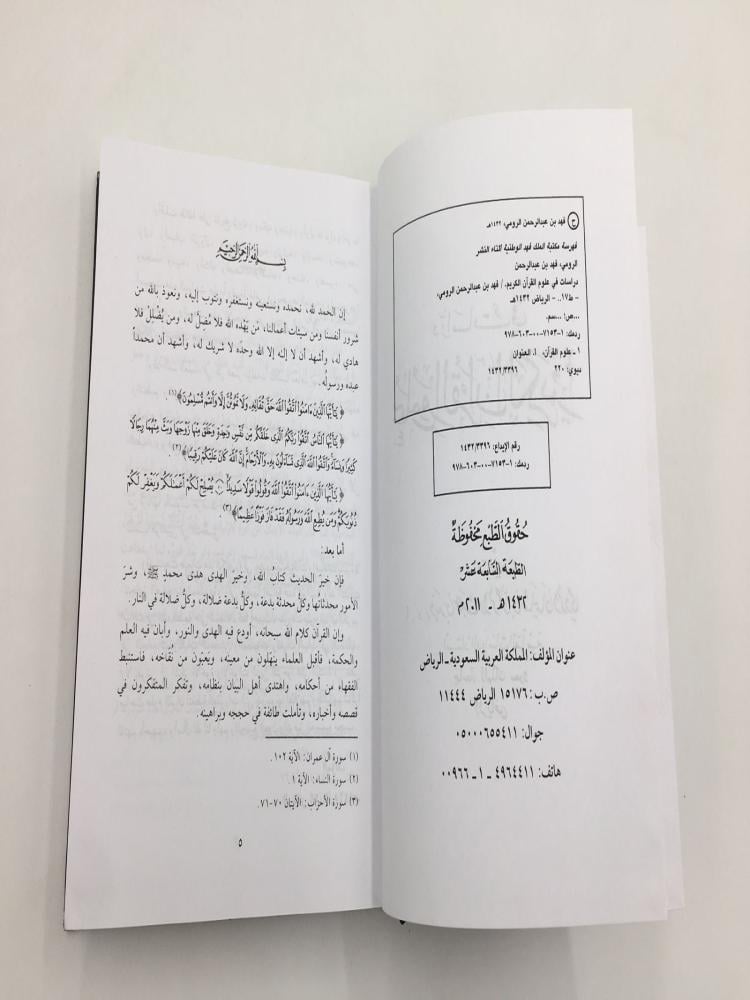 ح فهد بن عبدالرحمن الرومي، ١٤٣٢هـ
فهرسة مكتبة الملك فهد الوطنية أثناء النشر
الرومي، فهد بن عبدالرحمن
دراسات في علوم القرآن الكريم. / فهد بن عبدالرحمن الرومي،
- ط١٧.. - الرياض ١٤٣٢هـ
...ص؛ ...سم.
ردمك: ١-٧١٥٣-٠٠-٦٠٣-٩٧٨
١ - علوم القرآن، أ. العنوان
ديوي: ٢٢٠ ١٤٣٢/٣٣٩٦
رقم الإيداع: ١٤٣٢/٣٣٩٦
ردمك: ١-٧١٥٣-٠٠-٦٠٣-٩٧٨
حُقُوقُ الطَّبْعِ مَحْفُوظَةٌ
الطَّبْعَة السَّابِعَة عَشَرْ
١٤٣٢هـ - ٢٠١١م
عنوان المؤلف: المملكة العربية السعودية - الرياض
ص.ب: ١٥١٧٦ الرياض ١١٤٤٤
جوال: ٠٥٠٠٠٦٥٥٤١١
هاتف: ٤٩٦٤٤١١ - ١ - ٠٠٩٦٦
بِسْمِ اللَّهِ الرَّحْمَنِ الرَّحِيمِ
إن الحمد لله، نحمده ونستعينه ونستغفره ونتوب إليه، ونعوذ بالله من
شرور أنفسنا ومن سيئات أعمالنا، مَن يَهْده الله فلا مُضلَّ له، ومن يُضْلِلْ فلا
هادي له، وأشهد أن لا إله إلا الله وحدَه لا شريك له، وأشهد أن محمداً
عبده ورسولُه.
﴿يَٰٓأَيُّهَا ٱلَّذِينَ ءَامَنُوا۟ ٱتَّقُوا۟ ٱللَّهَ حَقَّ تُقَاتِهِۦ وَلَا تَمُوتُنَّ إِلَّا وَأَنتُم مُّسْلِمُونَ﴾(١).
﴿يَٰٓأَيُّهَا ٱلنَّاسُ ٱتَّقُوا۟ رَبَّكُمُ ٱلَّذِى خَلَقَكُم مِّن نَّفْسٍ وَٰحِدَةٍ وَخَلَقَ مِنْهَا زَوْجَهَا وَبَثَّ مِنْهُمَا رِجَالًا
كَثِيرًا وَنِسَآءً وَٱتَّقُوا۟ ٱللَّهَ ٱلَّذِى تَسَآءَلُونَ بِهِۦ وَٱلْأَرْحَامَ إِنَّ ٱللَّهَ كَانَ عَلَيْكُمْ رَقِيبًا﴾(٢)
﴿يَٰٓأَيُّهَا ٱلَّذِينَ ءَامَنُوا۟ ٱتَّقُوا۟ ٱللَّهَ وَقُولُوا۟ قَوْلًا سَدِيدًا ۝ يُصْلِحْ لَكُمْ أَعْمَٰلَكُمْ وَيَغْفِرْ لَكُمْ
ذُنُوبَكُمْ وَمَن يُطِعِ ٱللَّهَ وَرَسُولَهُۥ فَقَدْ فَازَ فَوْزًا عَظِيمًا﴾(٣)
أما بعد:
فإن خيرَ الحديث كتابُ الله، وخيرَ الهدى هدى محمدٍ ﷺ، وشرَ
الأمور محدثاتُها وكلُّ محدثة بدعة، وكلُّ بدعة ضلالة، وكلُّ ضلالة في النار.
وإن القرآن كلام الله سبحانه، أودع فيه الهدى والنور، وأبان فيه العلم
والحكمة، فأقبل العلماء ينهلون من معينه، ويَعبّون من نُقاخه، فاستنبط
الفقهاء من أحكامه، واهتدى أهل البيان بنظامه، وتفكر المتفكرون في
قصصه وأخباره، وتأملت طائفة في حججه وبراهينه.
(١) سورة آل عمران: الآية ١٠٢.
(٢) سورة النساء: الآية ١
(٣) سورة الأحزاب: الآيتان ٧٠-٧١.
٥